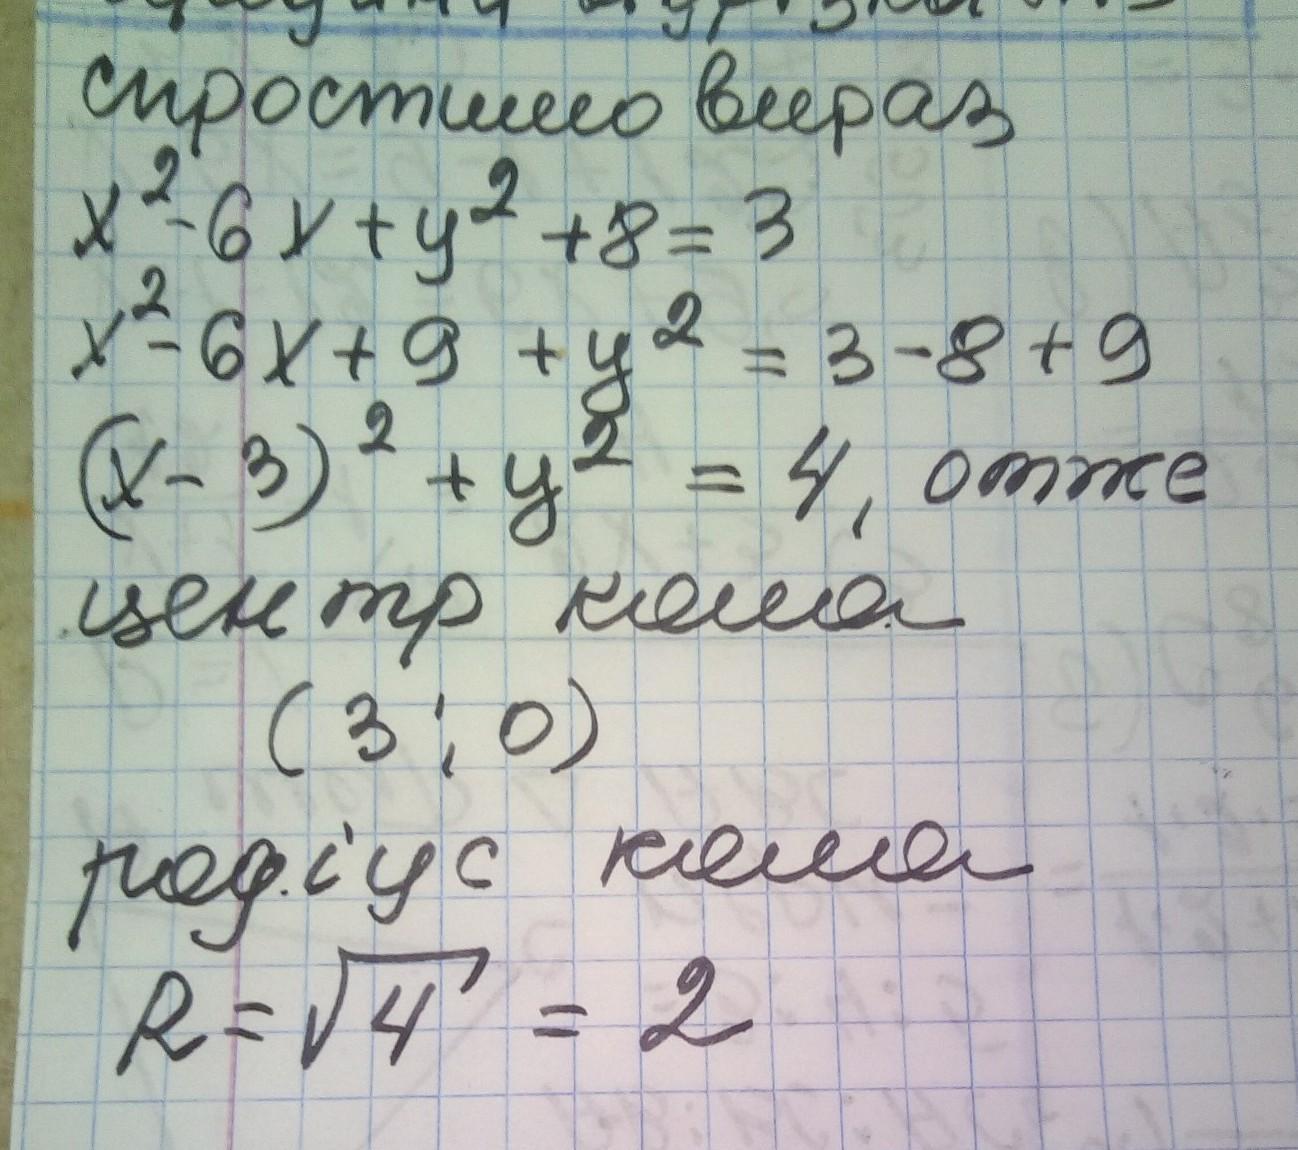 спростимо вираз
x² - 6x + y² + 8 = 3
x² - 6x + 9 + y² = 3 - 8 + 9
(x - 3)² + y² = 4, отже
центр кола
(3 ; 0)
радіус кола
R = √4 = 2